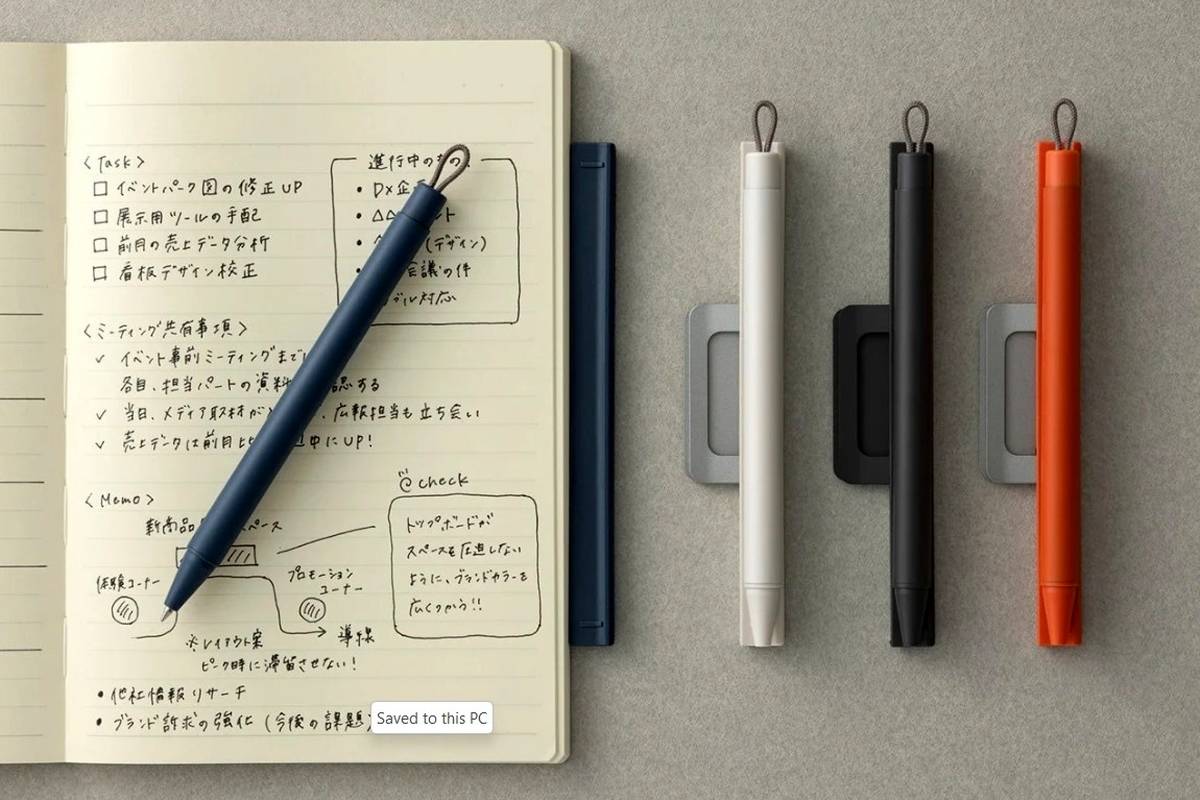 <Task>
□ イベントパーク図の修正UP
□ 展示用ツールの手配
□ 前月の売上データ分析
□ 看板デザイン校正
進行中のもの
・D×企
・△△ ント
・ (デザイン)
・ 会議の件
・ プル対応
<ミーティング共有事項>
✓ イベント事前ミーティングまでに
各自、担当パートの資料 認する
✓ 当日、メディア取材が 、広報担当も立ち会い
✓ 売上データは前月比 週中にUP!
<Memo>
新商品 スペース
体験コーナー
プロモーション
コーナー
導線
※レイアウト案
ピーク時に滞留させない!
check
トップボードが
スペースを圧迫しない
ように、ブランドカラーを
広くつかう!!
・他社情報リサーチ
・ブランド訴求の強化(今後の課題)
Saved to this PC